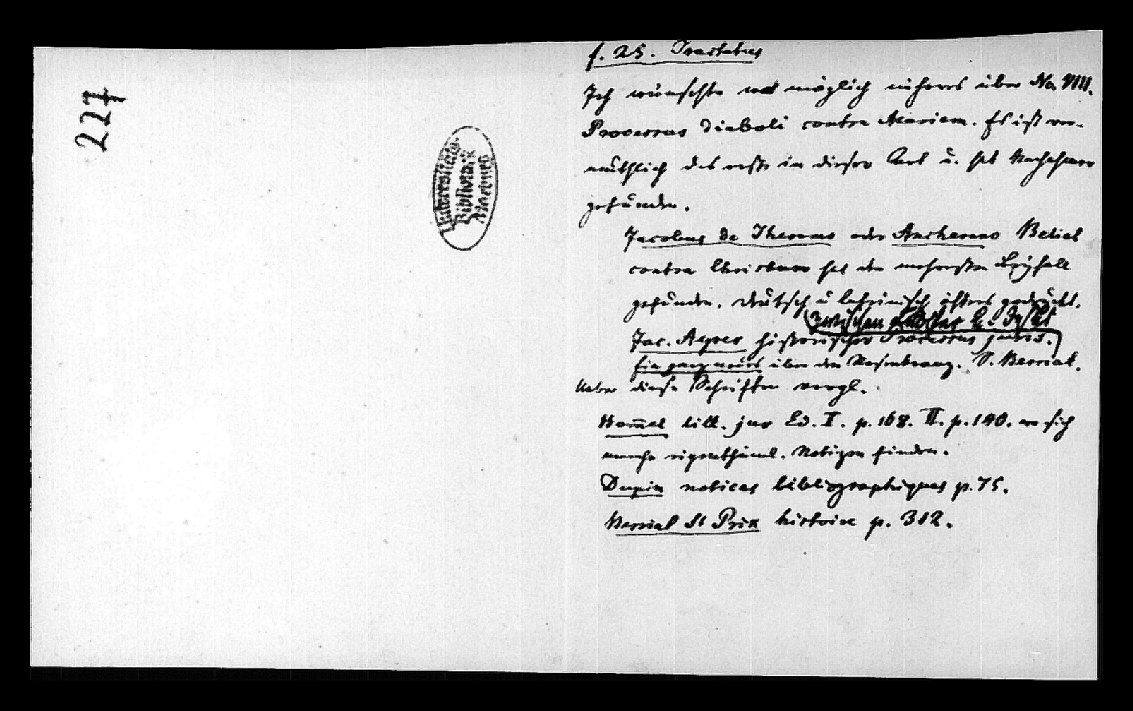 227
Universitäts-
Bibliothek
Marburg
f. 25. Tractatus
Ich wünschte wo möglich näheres über No. VIII.
Processus diaboli contra Mariam. Es ist ver-
muthlich das erste in dieser Art u. hat Nachahmer
gefunden.
Jacobus de Theramo oder Ancharano Belial
contra Christum hat den mehresten Beyfall
gefunden. Deutsch u lateinisch öfters gedruckt.
zwischen
Jac. Ayrer historischer Processus juris.
über den S. Berriat.
Ueber diese Schriften vergl.
Hommel litt. jur Ed. I. p. 168. II. p. 140. wo sich
manche eigenthüml. Notizen finden.
Dupin notices bibliographiques p. 75.
Berriat St Prix histoire p. 312.